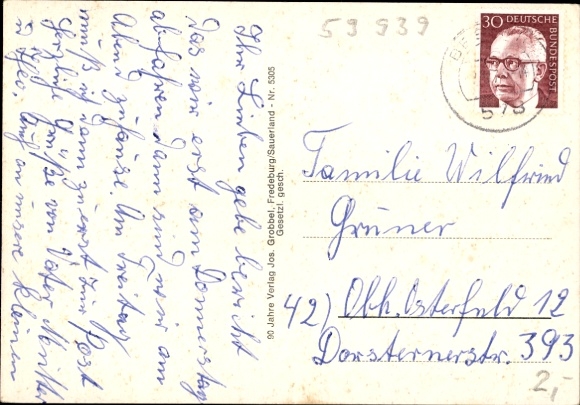 59 939
30 DEUTSCHE
BUNDESPOST
578
Ihr Lieben gebe bericht
das wir erst am Donnerstag
abfahren dann sind wir am
Abend zuhause. Am Freitag
muß ich dann zuerst zur Post
Herzliche Grüße von Vater Mutter
auch an unsere kleinen
90 Jahre Verlag Jos. Grobbel, Fredeburg/Sauerland - Nr. 5305
Gesetzl. gesch.
Familie Wilfried
Grüner
42) Obh. Osterfeld 12
Dorstenerstr. 393
2,-